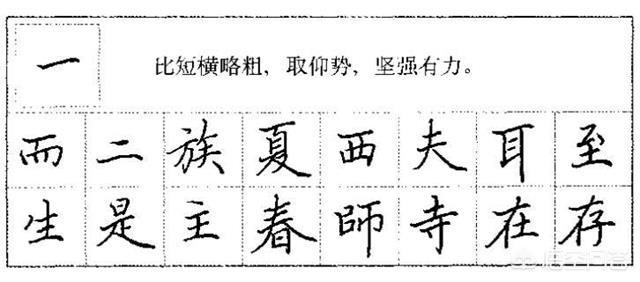 一
比短横略粗，取仰势，坚强有力。
而二族夏西夫耳至
生是主春師寺在存